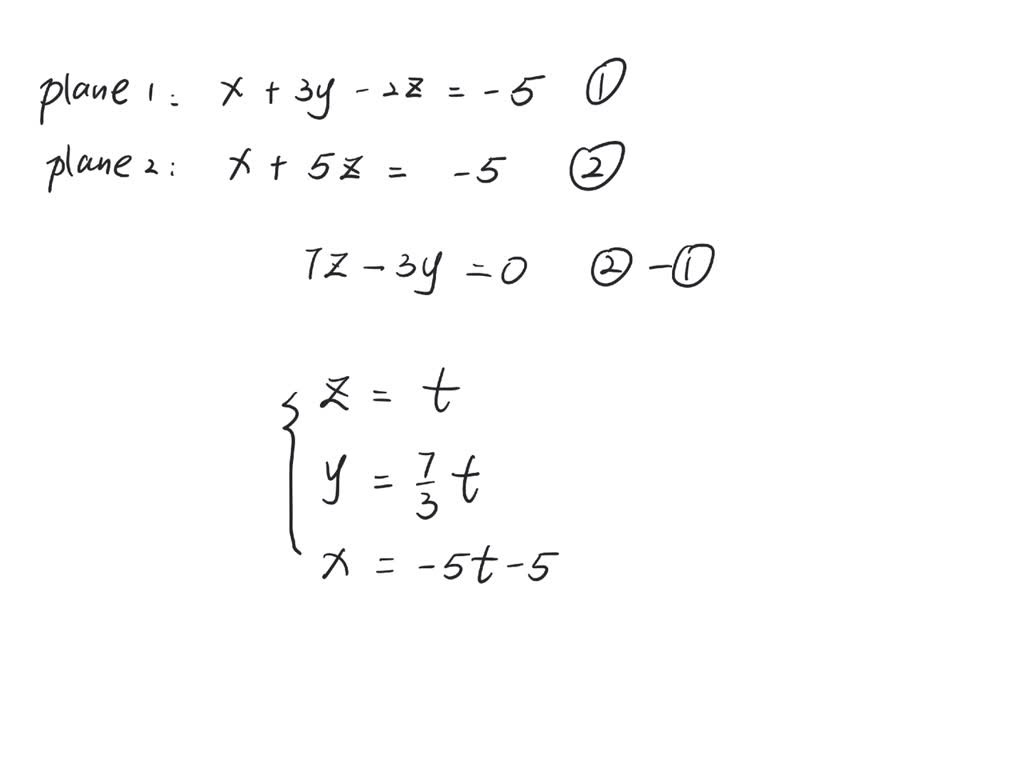 plane 1: x + 3y - 2z = -5 ①
plane 2: x + 5z = -5 ②
7z - 3y = 0 ② - ①
{ z = t
y = 7/3 t
x = -5t - 5